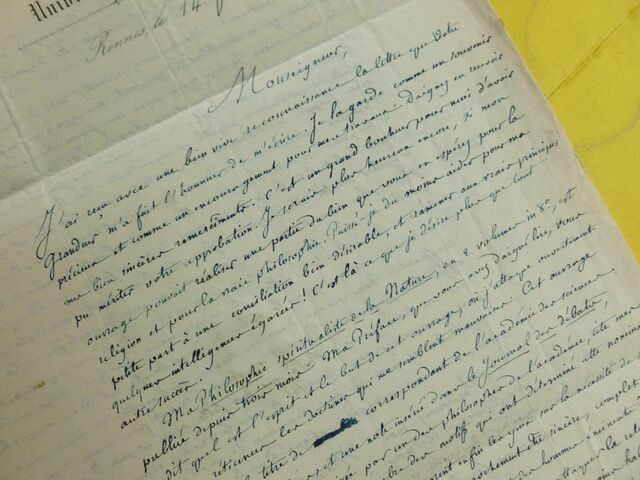 Rennes, le 14
Monseigneur,
J'ai reçu avec une bien vive reconnaissance la lettre que Votre
Grandeur m'a fait l'honneur de m'écrire. Je la garde comme un souvenir
précieux et comme un encouragement pour mes travaux. Daignez en recevoir
mes bien sincères remerciments. C'est un grand bonheur pour moi d'avoir
pu mériter votre approbation. Je serais plus heureux encore, si mon
ouvrage pouvait réaliser une partie du bien que vous en espérez pour la
religion et pour la vraie philosophie. Puissé-je du moins aider pour ma
petite part à une conciliation bien désirable, et ramener aux vrais principes
quelques intelligences égarées! C'est là ce que je désire plus que tout
autre succès.
Ma Philosophie spiritualiste de la Nature, en 2 volumes in 8°, est
publiée depuis trois mois. Ma Préface, que vous avez daigné lire, vous
dit quel est l'esprit et le but de cet ouvrage, où j'attaque ouvertement
réticences les doctrines qui me semblent mauvaises. Cet ouvrage
titre de correspondant de l'académie des sciences
et une note insérée dans le Journal des débats,
par un des philosophes de l'académie,
des motifs qui ont déterminé cette
enfin les yeux sur la nécessité de
sincère, complet